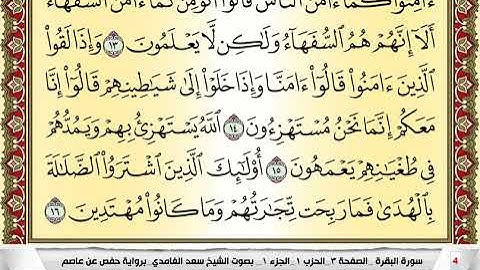 ءَامِنُوا۟ كَمَآ ءَامَنَ ٱلنَّاسُ قَالُوٓا۟ أَنُؤْمِنُ كَمَآ ءَامَنَ ٱلسُّفَهَآءُ
أَلَآ إِنَّهُمْ هُمُ ٱلسُّفَهَآءُ وَلَٰكِن لَّا يَعْلَمُونَ ١٣ وَإِذَا لَقُوا۟
ٱلَّذِينَ ءَامَنُوا۟ قَالُوٓا۟ ءَامَنَّا وَإِذَا خَلَوْا۟ إِلَىٰ شَيَٰطِينِهِمْ قَالُوٓا۟ إِنَّا
مَعَكُمْ إِنَّمَا نَحْنُ مُسْتَهْزِءُونَ ١٤ ٱللَّهُ يَسْتَهْزِئُ بِهِمْ وَيَمُدُّهُمْ
فِى طُغْيَٰنِهِمْ يَعْمَهُونَ ١٥ أُو۟لَٰٓئِكَ ٱلَّذِينَ ٱشْتَرَوُا۟ ٱلضَّلَٰلَةَ
بِٱلْهُدَىٰ فَمَا رَبِحَت تِّجَٰرَتُهُمْ وَمَا كَانُوا۟ مُهْتَدِينَ ١٦
سورة البقرة _ الصفحة ٣ _ الحزب ١ _ الجزء ١ _ بصوت الشيخ سعد الغامدي _ برواية حفص عن عاصم 4